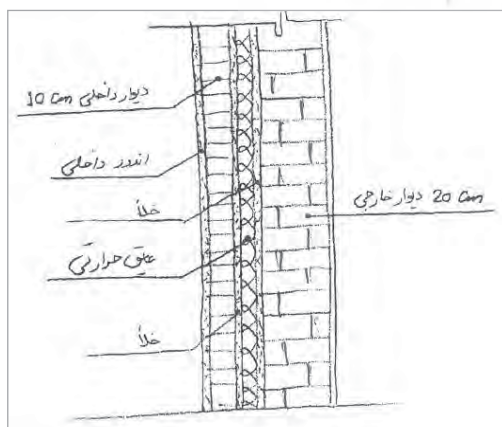 دیوار داخلی 10 cm
اندود داخلی
خلأ
عایق حرارتی
خلأ
20 cm دیوار خارجی